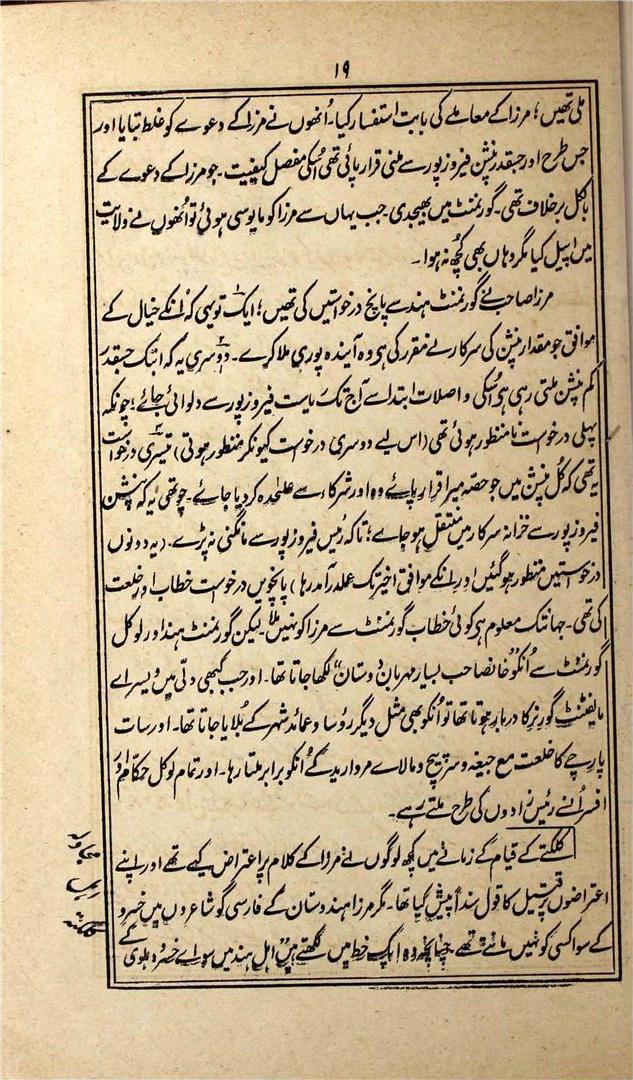 ۱۹
ملی تھیں؛ مرزا کے معاملے کی بابت استفسار کیا۔ اُنھوں نے مرزا کے دعوے کو غلط بتایا اور
جس طرح اور جسقدر پنشن فیروزپور سے ملنی قرار پائی تھی اُسکی مفصل کیفیت۔ جو مرزا کے دعوے کے
بالکل برخلاف تھی۔ گورنمنٹ میں بھیجدی۔ جب یہاں سے مرزا کو مایوسی ہوئی تو اُنھوں نے ولایت
میں اپیل کیا مگر وہاں بھی کُچھ نہ ہوا۔
مرزا صاحب نے گورنمنٹ ہند سے پانچ درخواستیں کی تھیں؛ ایک تو یہی کہ اُنکے خیال کے
موافق جو مقدار پنشن کی سرکار نے مقرر کی ہی وہ آیندہ پوری ملا کرے۔ دوسری یہ کہ ابتک جسقدر
کم پنشن ملتی رہی ہی اُسکی واصلات ابتدا سے آج تک ریاست فیروزپور سے دلوائی جائے؛ چونکہ
پہلی درخواست نامنظور ہوئی تھی (اس لیے دوسری درخواست کیونکر منظور ہوتی) تیسری درخواست
یہ تھی کہ کُل پنشن میں جو حصہ میرا قرار پائے وہ اور شرکا سے علٰحدہ کر دیا جائے۔ چوتھی یہ کہ پنشن
فیروزپور سے خزانہ سرکار میں منتقل ہو جاے؛ تاکہ رئیس فیروزپور سے مانگنی نہ پڑے۔ (یہ دونوں
درخواستیں منظور ہوگئیں اور اِنکے موافق اخیر تک عملدرآمد رہا) پانچویں درخواست خطاب اور خلعت
کی تھی۔ جہانتک معلوم ہی کوئی خطاب گورنمنٹ سے مرزا کو نہیں ملا۔ لیکن گورنمنٹ ہند اور لوکل
گورنمنٹ سے اُنکو "خانصاحب بسیار مہربان دوستان" لکھا جاتا تھا۔ اور جب کبھی دلی میں ویسراے
یا لفٹننٹ گورنر کا دربار ہوتا تھا تو اُنکو بھی مثل دیگر رؤسا و عمائد شہر کے بُلایا جاتا تھا۔ اور سات
پارچے کا خلعت مع جیغہ و سرپیچ و مالاے مروارید کے اُنکو برابر ملتا رہا۔ اور تمام لوکل حکّام اور
افسر اُنسے رئیس زادوں کی طرح ملتے رہے۔
کلکتے کے قیام کے زمانے میں کچھ لوگوں نے مرزا کے کلام پر اعتراض کیے تھے اور اپنے
اعتراضوں پر قتیل کا قول سنداً پیش کیا تھا۔ مگر مرزا ہندوستان کے فارسی گو شاعروں میں خسرو
کے سوا کسی کو نہیں مانتے تھے۔ چنانچہ وہ ایک خط میں لکھتے ہیں "اہل ہند میں سواے خسرو دہلوی کے